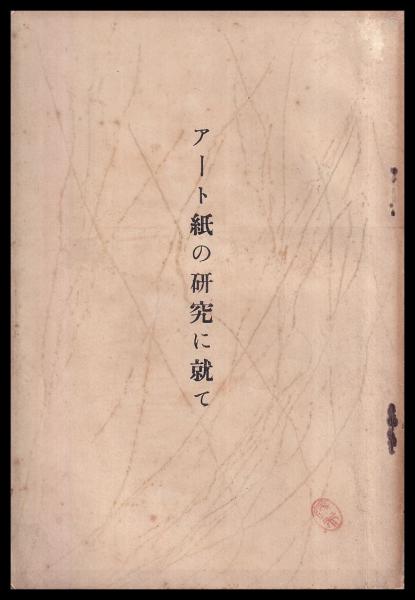 アート紙の研究に就て